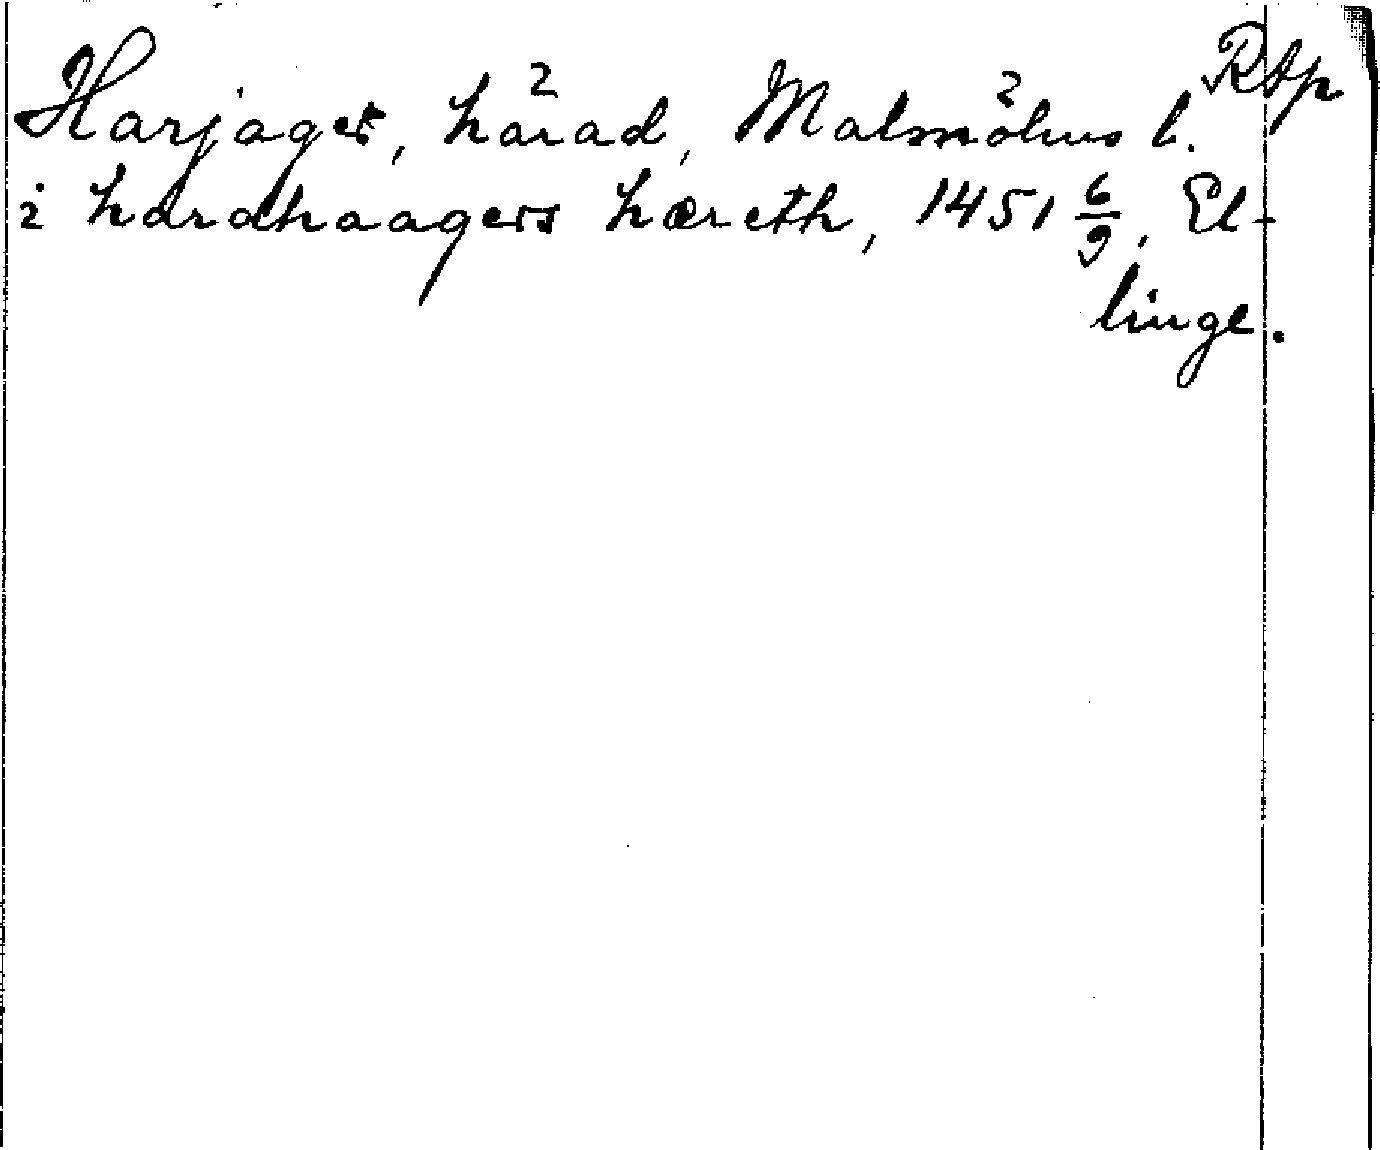 Rtp
Harjager, härad, Malmöhus l.
i hardhaagers hæreth, 1451 6/9, El-
linge.